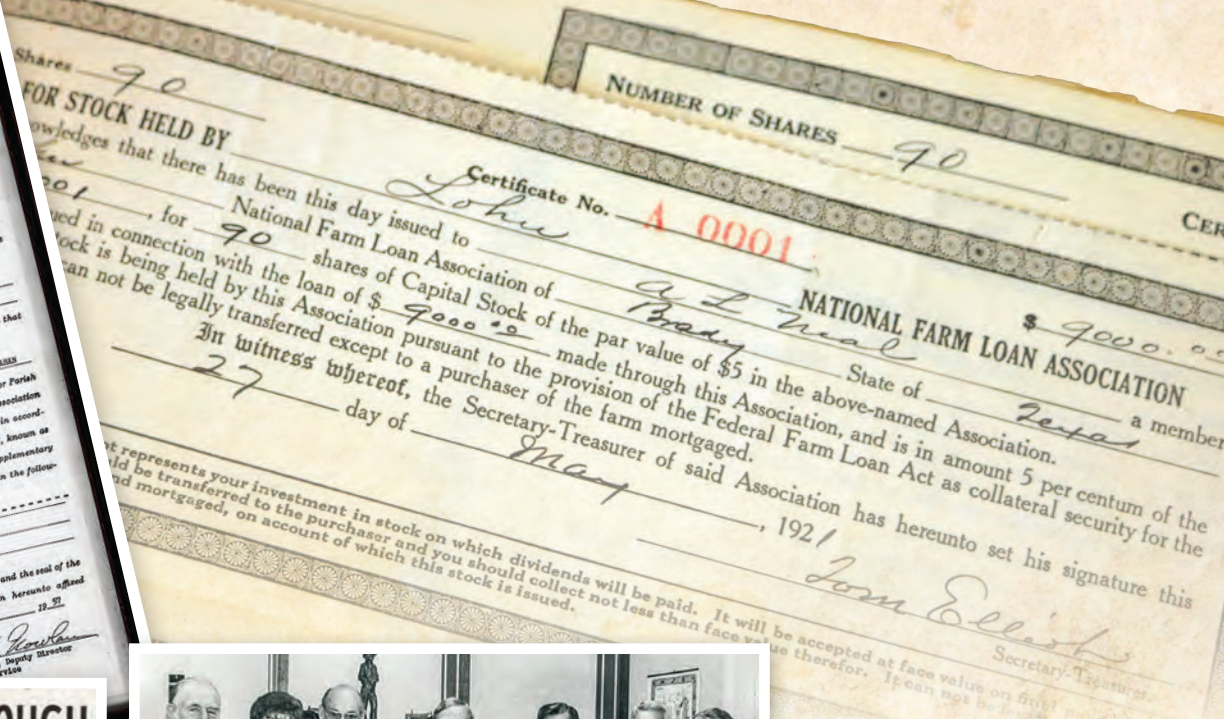 Shares 90
FOR STOCK HELD BY
NUMBER OF SHARES 90
CER
Certificate No. A 0001
Lohn NATIONAL FARM LOAN ASSOCIATION
$ 9000.00
owledges that there has been this day issued to A L Neal a member
National Farm Loan Association of Brady State of Texas
001, for 90 shares of Capital Stock of the par value of $5 in the above-named Association.
ued in connection with the loan of $ 9000.00 made through this Association, and is in amount 5 per centum of the
tock is being held by this Association pursuant to the provision of the Federal Farm Loan Act as collateral security for the
an not be legally transferred except to a purchaser of the farm mortgaged.
In witness whereof, the Secretary-Treasurer of said Association has hereunto set his signature this
27 day of May, 1921
Tom Ellish
Secretary-Treasurer.
t represents your investment in stock on which dividends will be paid. It will be accepted at face value on final
ld be transferred to the purchaser and you should collect not less than face value therefor. It can not be
nd mortgaged, on account of which this stock is issued.
that
or Parish
ssociation
in accord-
, known as
pplementary
n the follow-
and the seal of the
n hereunto affixed
19 51
Deputy Director
rvice
OUGH